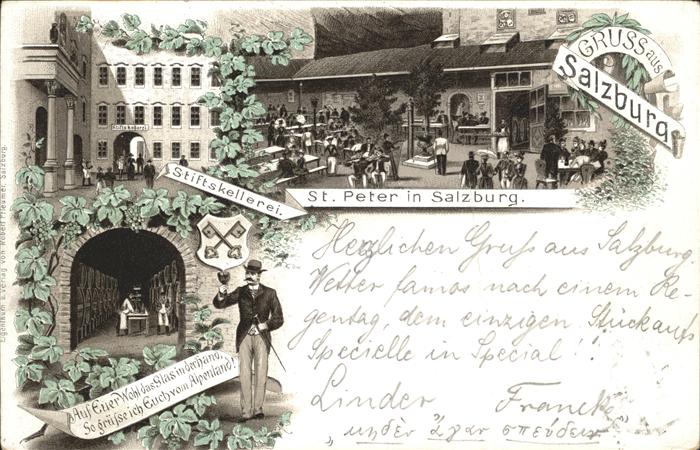 GRUSS aus
Salzburg.
Stiftskellerei
Stiftskellerei.
St. Peter in Salzburg.
Auf Euer Wohl das Glas in der Hand,
So grüsse ich Euch vom Alpenland!
Eigenthum u. Verlag von Robert Hessmer, Salzburg.
Herzlichen Gruss aus Salzburg.
Wetter famos nach einem Re-
gentag, dem einzigen. Stück aufs
Specielle in Special!!
Linder Francke
„μηδὲν ἄγαν σπεύδειν“